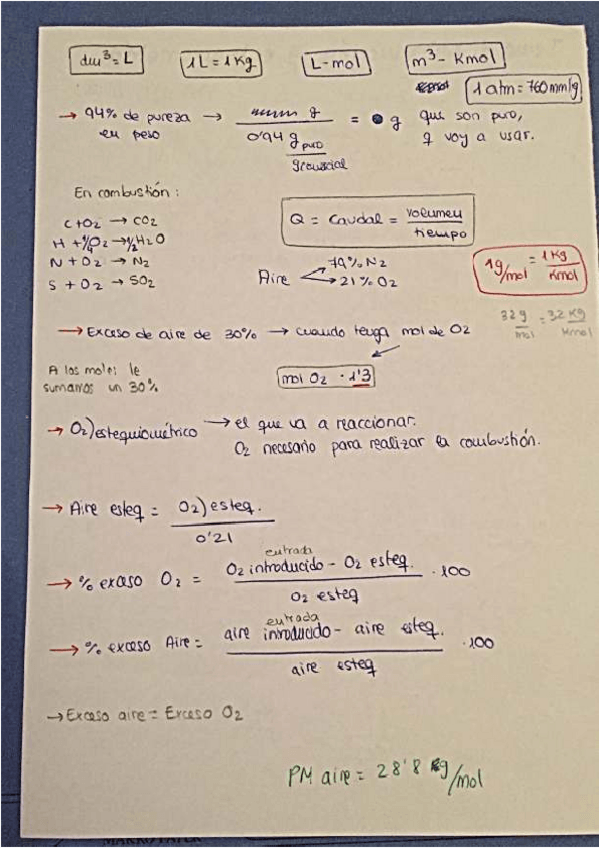 dm³ = L   1L = 1 Kg   L - mol   m³ - Kmol
1 atm = 760 mmHg
→ 94% de pureza en peso → g / 0'94 g puro / g comercial = g que son puro, q voy a usar.
En combustión:
C + O₂ → CO₂
H + 1/4 O₂ → 1/2 H₂O
N + O₂ → N₂
S + O₂ → SO₂
Q = Caudal = volumen / tiempo
Aire → 79% N₂
→ 21% O₂
1 g/mol = 1 Kg / Kmol
32 g / mol = 32 Kg / Kmol
→ Exceso de aire de 30% → cuando tenga mol de O₂
A los moles le
sumamos un 30%
mol O₂ · 1'3
→ O₂) estequiométrico → el que va a reaccionar.
O₂ necesario para realizar la combustión.
→ Aire esteq = O₂) esteq. / 0'21
→ % exceso O₂ = O₂ introducido entrada - O₂ esteq. / O₂ esteq · 100
→ % exceso Aire = aire introducido entrada - aire esteq. / aire esteq · 100
→ Exceso aire = Exceso O₂
PM aire = 28'8 g/mol